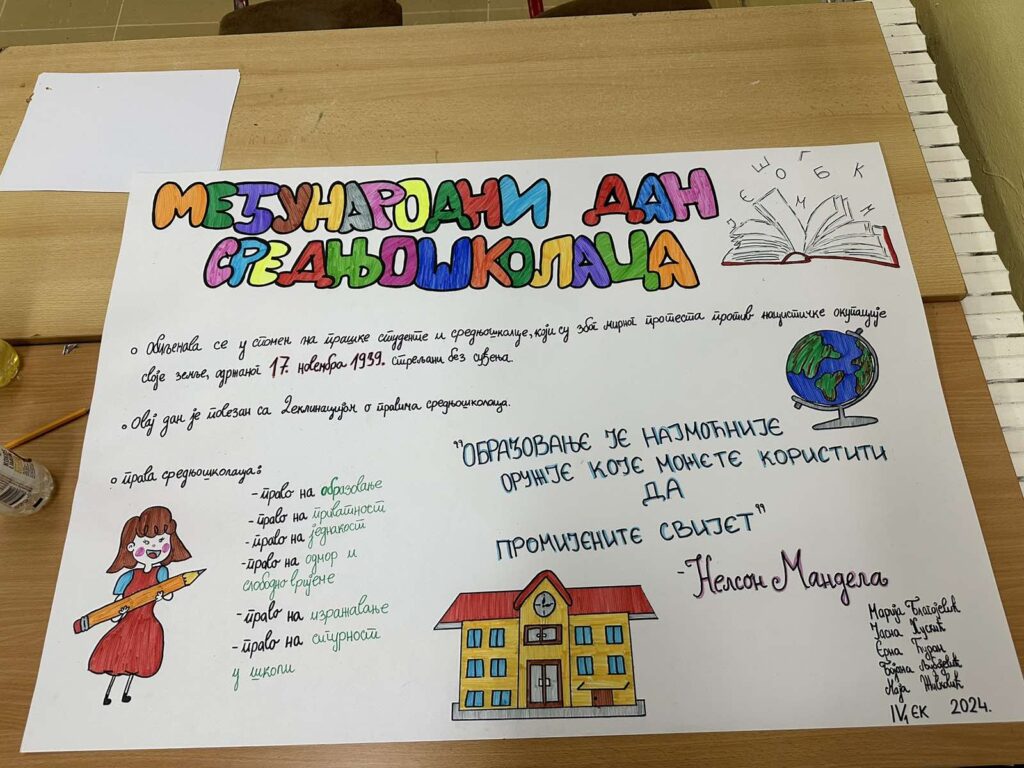 МЕЂУНАРОДНИ ДАН
СРЕДЊОШКОЛАЦА
Обиљежава се у спомен на прашке студенте и средњошколце, који су због мирног протеста против нацистичке окупације
своје земље, одржаног 17. новембра 1939. стрељани без суђења.
Овај дан је повезан са Декларацијом о правима средњошколаца.
"ОБРАЗОВАЊЕ ЈЕ НАЈМОЋНИЈЕ
ОРУЖЈЕ КОЈЕ МОЖЕТЕ КОРИСТИТИ
ДА
ПРОМИЈЕНИТЕ СВИЈЕТ"
-Нелсон Мандела
права средњошколаца:
-право на образовање
-право на приватност
-право на једнакост
-право на одмор и
слободно вријеме
-право на изражавање
-право на сигурност
у школи
Марија Благојевић
Јасна
Ерна
Бојана
Маја Живковић
IV1 ЕК 2024.